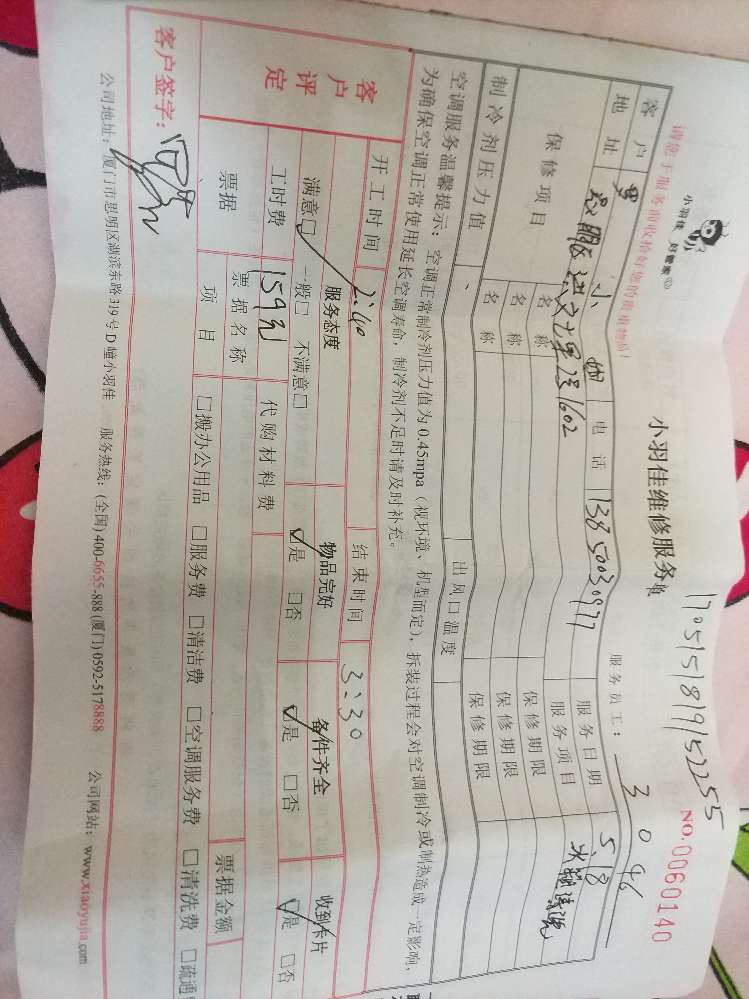 请您于服务前收拾好您的贵重物品！
小羽佳 好管家
小羽佳维修服务
1705151819152255
NO.0060140
服务员工： 3046
客户 罗小姐 电话 13850030977 服务日期 5.18
地址 思明区洪文七里 1602 服务项目 冰箱清洗
保修项目 名称 保修期限
名称 保修期限
名称 保修期限
制冷剂压力值 出风口温度
空调服务温馨提示：空调正常制冷剂压力值为0.45mpa（视环境、机型而定），拆装过程会对空调制冷或制热造成一定影响，
为确保空调正常使用延长空调寿命，制冷剂不足时请及时补充。
开工时间 2:40 结束时间 3:30
客户评定
服务态度 物品完好 备件齐全 收到卡片
满意□ 一般□ 不满意□ ☑是 □否 ☑是 □否 ☑是 □否
工时费 159元 代购材料费
票据 票据名称 票据金额
项目 □搬办公用品 □服务费 □清洁费 □空调服务费 □清洗费 □疏通
客户签字：
公司地址：厦门市思明区湖滨东路319号D幢小羽佳 服务热线：(全国)400-6655-888 (厦门)0592-5178888 公司网站：www.xiaoyujia.com